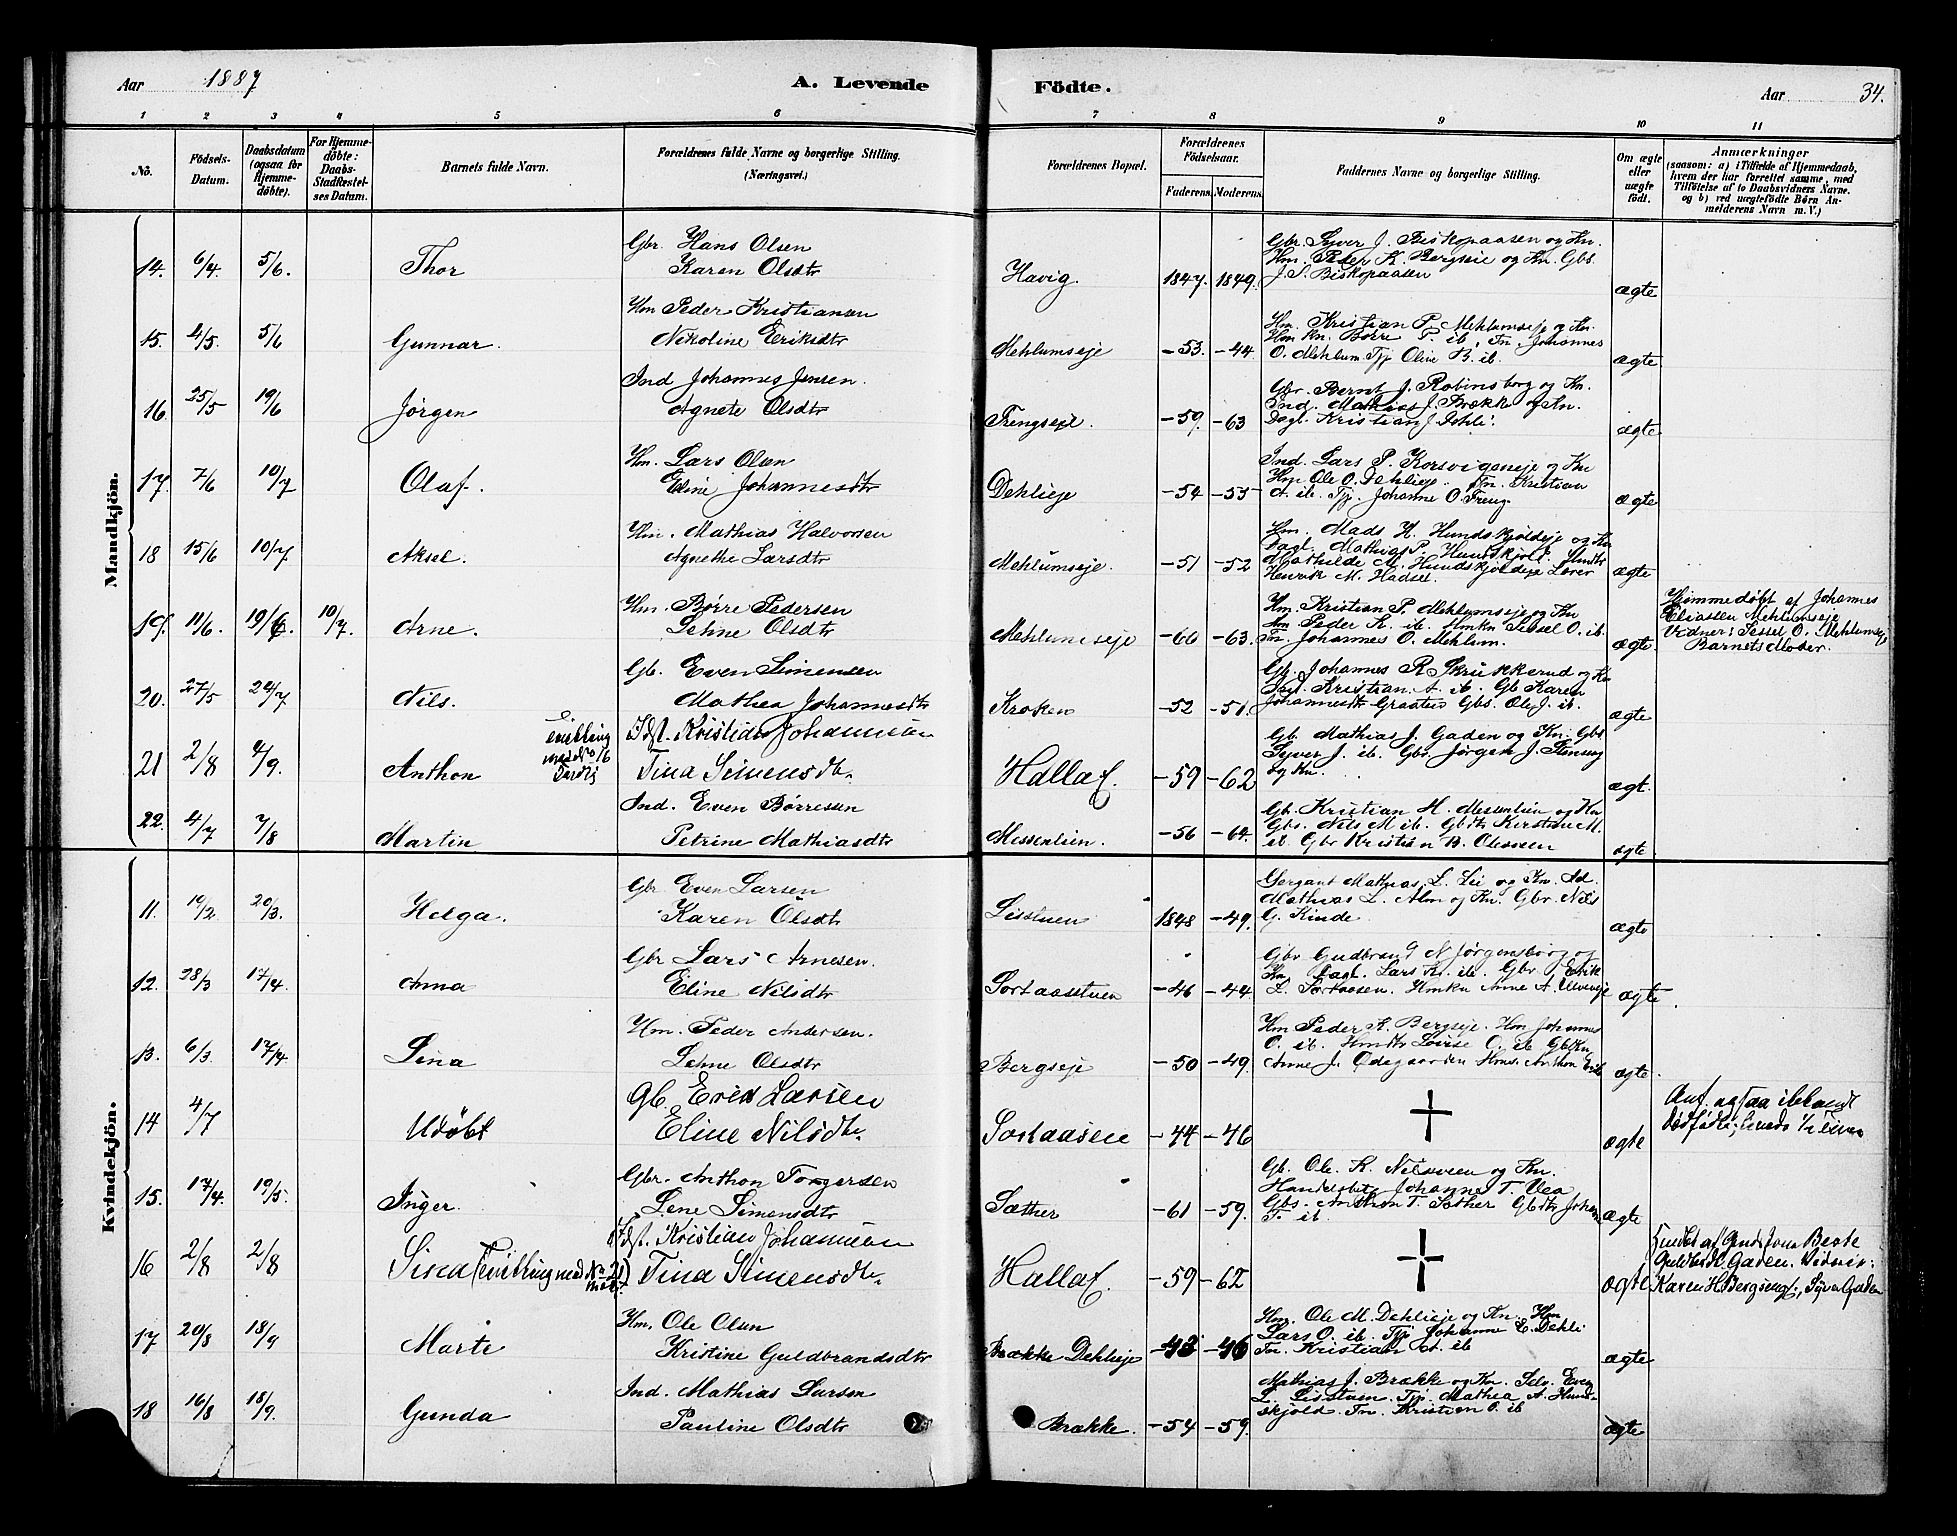 Aar 1887 A. Levende Födte. Aar 34.
1 2 3 4 5 6 7 8 9 10 11
No. Födsels-Datum. Daabsdatum (ogsaa for Hjemme-döbte). For Hjemme-döbte: Daabs-Stadfæstel-ses Datum. Barnets fulde Navn. Forældrenes fulde Navne og borgerlige Stilling. (Næringsvei.) Forældrenes Bopæl. Forældrenes Födselsaar. Faderens. Moderens. Faddernes Navne og borgerlige Stilling. Om ægte eller uægte födt. Anmærkninger (saasom: a) i Tilfælde af Hjemmedaab, hvem der har forrettet samme, med Tilföielse af to Daabsvidners Navne. og b) ved uægtefödte Börn An-melderens Navn m. V.)
Mandkjön.
14. 6/4. 5/6. Thor Gbr. Hans Olsen
Karen Olsdtr Havig. 1847. 1849. Gbr. Syver J. Biskopaasen og Kn.
Hm. Peder K. Bergseie og Kn. Gbs.
J. S. Biskopaasen ægte
15. 4/5. 5/6 Gunnar. Hm Peder Kristiansen
Nikoline Eriksdtr Mehlumseje -53. -44. Hm. Kristian P. Mehlumseje og Kn.
Hm Kn. Børre P. ib. Tn. Johannes
O. Mehlum. Tp. Oline B. ib. ægte
16. 25/5 19/6 Jørgen Ind Johannes Jensen.
Agnete Olsdtr -59. -63 Gbr. Bernt J. Robinsborg og Kn.
Ind. Mathias J. Brække og Kn.
Dagl. Kristian J. Dehli. ægte
17. 7/6 10/7 Olaf. Hm. Lars Olsen
Eline Johannesdtr Dehlieje -54 -53 Ind. Lars P. Korsvigseje og Kn
Hm Ole O. Dehlieje. Tn. Kristian
A. ib. Tp. Johanne O. Treng. ægte
18 15/6 10/7 Aksel. Hm. Mathias Halvorsen
Agnethe Larsdtr Mehlumseje. -51 -52 Hm. Mads H. Hundskjoldeje og Kn
Dagl. Mathias P. Hundskjold.
Mathilde M. Hundskjoldeje Lærer
Henrik M. Hadsel. ægte
19. 11/6. 19/6. 10/7. Arne. Hm. Børre Pedersen
Lehne Olsdtr Mehlumseje -60 -63. Hm. Kristian P. Mehlumseje og Kn
Hm Peder K. ib. Hmkn Sessel O. ib.
Tn. Johannes O. Mehlum. ægte. Hjemmedøbt af Johannes
Eliassen Mehlumseje
Vidner: Sessel O. Mehlumseje
Barnets Moder.
20. 27/5 24/7 Nils. Gb. Even Simensen
Mathea Johannesdtr Kroken -52 -51. Gb. Johannes R. Skrukkerud og Kn
Dagl. Kristian. A. ib. Gb Karen
Johannesdtr Graaten Gbs. Ole J. ib. ægte
21 2/8 4/9. Anthon Idst. Kristian Johannesen
Tina Simensdtr. Hallaf. -59 -62 Gb. Mathias J. Gaden og Kn. Gbs
Syver J. ib. Gbr. Jørgen J. Stensveg
og Kn. ægt.
22. 4/7 7/8 Martin Ind. Even Børresen
Petrine Mathiasdtr Messenlien. -56 -64. Gb. Kristian H. Messenlien og Kn
Gbs. Nils M ib. Gbdtr Kirstine M.
ib. Gbr Kristian B. Olessen ægte
Kvindekjön.
11. 19/2. 20/3. Helga. Gbr Even Larsen
Karen Olsdtr Lisstuen 1848 -49. Sergant Mathias L. Lie og Kn. Sd.
Mathias L. Alm og Kn. Gbr. Nils
G. Kinde ægte
12. 28/3 17/4. Anna Gbr Lars Arnesen.
Eline Nilsdtr Sortaasstuen -46 -44 Gbr Gudbrand N. Jørgensborg og
Kn Dagl. Lars Kr. ib. Gbr. Erik
L. Sortaasen. Hmkn Anne A. Ulveeje ægte.
13. 6/3. 17/4. Lina Hm. Peder Andersen.
Lehne Olsdtr Bergseje -50 -49. Hm Peder K. Bergseje. Hm Johannes
O. ib. Hmdtr Lovise O. ib Gbkn
Anne J. Ødegaarden Hms. Anthon Erik ægte.
14 4/7 Udøbt Gb. Erik Larsen
Eline Nilsdtr. Sortaasen -44 -46 + ægte Anf. ogsaa iblandt
dødfødte; levede 1/2 time
15. 17/4. 19/5. Inger. Gbr. Anthon Torgersen
Lene Simensdtr Sæther -61 -59. Gb. Ole K. Nilsveen og Kn.
Johannes T. Vea
Gbs. Anthon T. Sæther Gbdtr Johan
T. ib. ægte
16 2/8 2/8 Sina (Tvilling med No 21 Mdk.) Idst. Kristian Johannesen
Tina Simensdtr. Hallaf. -59 -62 + ægte Guldbr. H. Gaden. Vidner:
Karen H. Bergseng, Syver Gaden
17 20/8 18/9 Marte Hm. Ole Olsen
Kristine Guldbrandsdtr Brække Dehlieje -43 -46 Hm. Ole M. Dehlieje og Kn. Hm
Lars O. ib. Tp Johanne E. Dehli
Tn. Kristian A. ib ægte
18 16/8 18/9. Gunda Ind. Mathias Larsen
Pauline Olsdtr Brække. -54 -59. Mathias J. Brække og Kn. Selv. Even
L. Lisstuen. Tp. Mathea A. Hund-
skjold. Tn. Kristian O. ib ægte